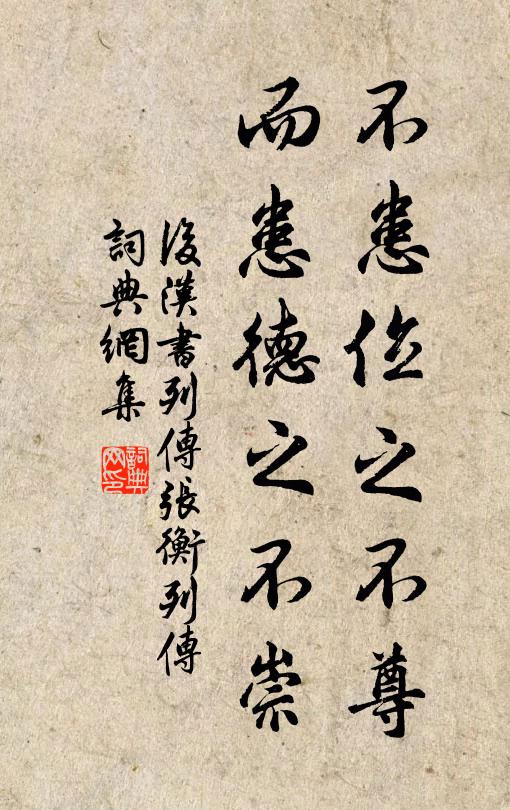 不患位之不尊
而患德之不崇
後漢書列傳張衡列傳
詞典網集
詞典网印